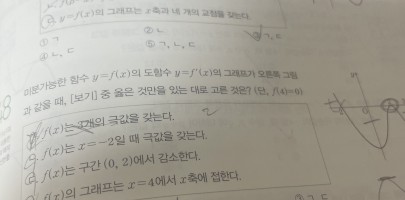 y=f(x)의 그래프는 x축과 네 개의 교점을 갖는다.
① ㄱ ② ㄴ ㄱ, ㄷ
④ ㄴ, ㄷ ⑤ ㄱ, ㄴ, ㄷ
미분가능한 함수 y=f(x)의 도함수 y=f'(x)의 그래프가 오른쪽 그림
과 같을 때, [보기] 중 옳은 것만을 있는 대로 고른 것은? (단, f(4)=0)
2
f(x)는 3개의 극값을 갖는다.
f(x)는 x=-2일 때 극값을 갖는다.
f(x)는 구간 (0, 2)에서 감소한다.
f(x)의 그래프는 x=4에서 x축에 접한다.